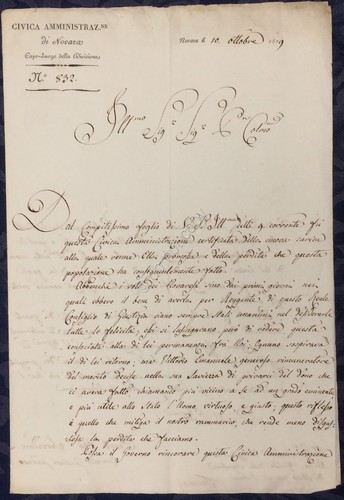 CIVICA AMMINISTRAZ.NE
di Novara
Capo-Luogo della Divisione
N.º 832.
Novara li 10. Ottobre
Ill.mo Sig.e Sig.e
Dal Compitissimo foglio di S. S. Ill.ma delli 9 corrente fu
questa Civica Amministrazione certificata della nuova carica
alla quale venne Ella promossa e della perdita che questa
popolazione ha conseguentemente fatto.
Abbenchè i voti dei Novaresi sino dai primi giorni nei
quali ebbero il bene di averla per Reggente di questo Reale
Consiglio di Giustizia siano sempre stati unanimi nel
tutte le felicità, essi si lusingavano però di vedere questa
alla di lei permanenza fra Noi. Ognuno sospirava
il di lei ritorno, ma Vittorio Emanuele generoso rimuneratore
dei meriti decise nella sua Saviezza di privarci del dono che
ci aveva fatto chiamando più vicino a se ad un grado eminente
e più utile allo Stato l'Uomo virtuoso e giusto, questo riflesso
è quello che mitiga il nostro rammarico, che rende meno
la perdita che facciamo.
il Governo rincorare questa Civica Amministrazione